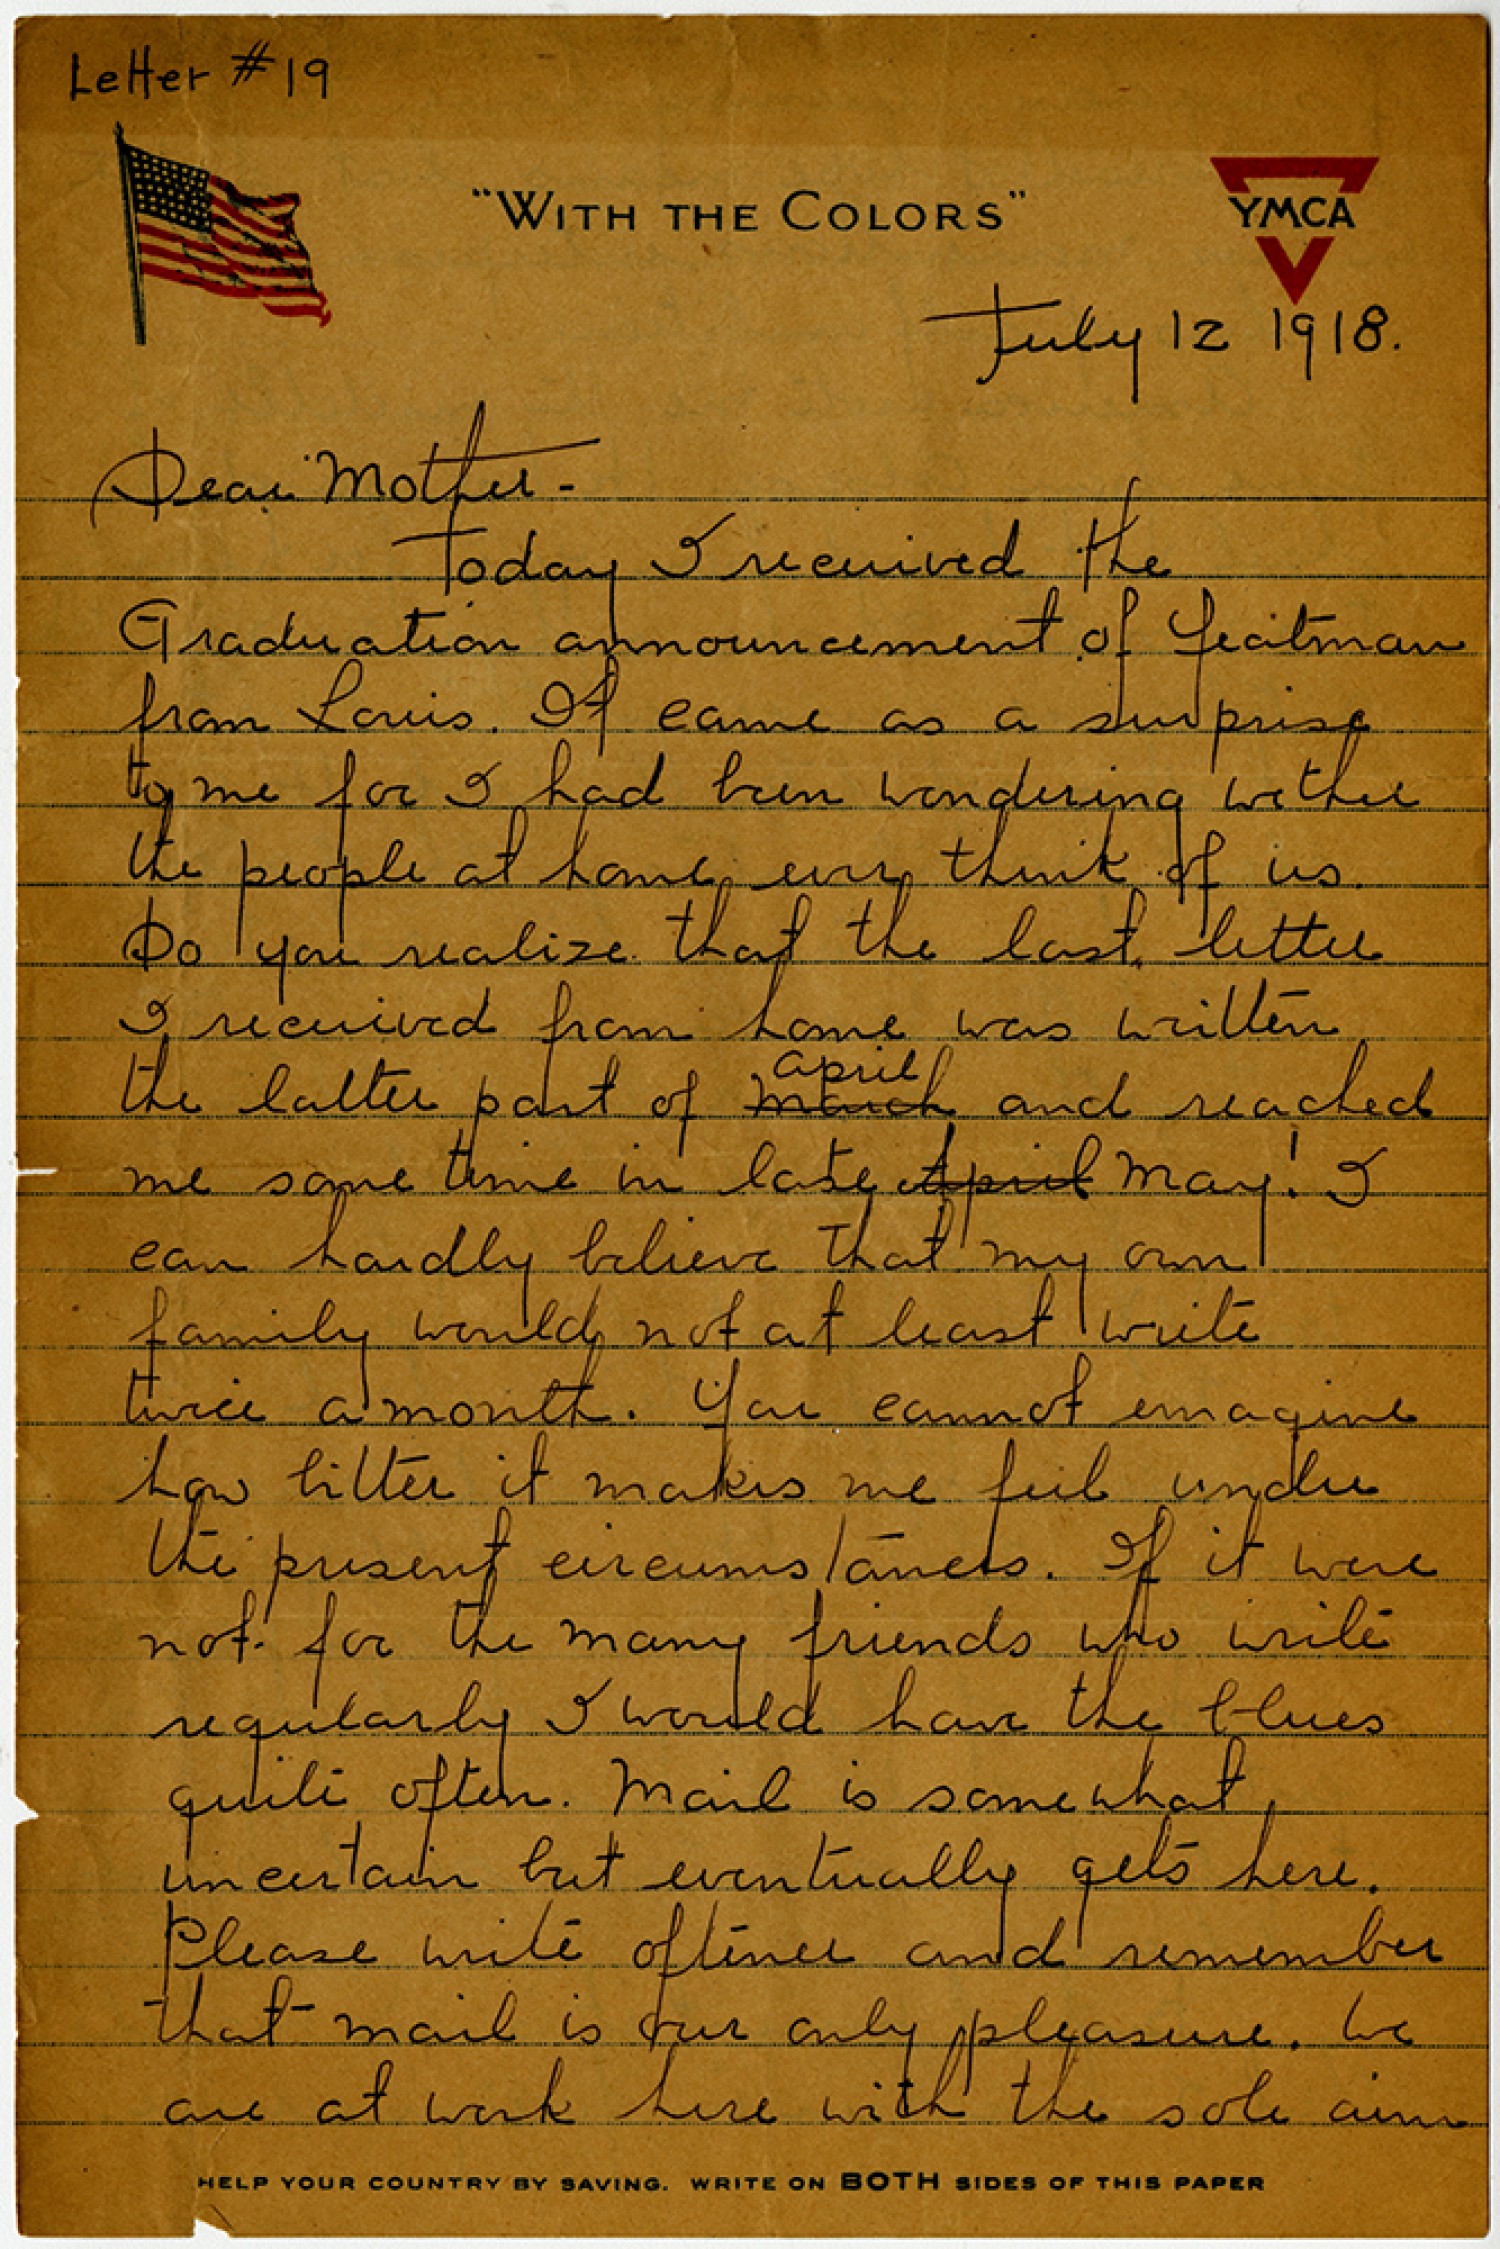 Letter #19
"WITH THE COLORS"
YMCA
July 12 1918.
Dear Mother -
Today I received the
Graduation announcement of Yeatman
from Louis. It came as a surprise
to me for I had been wondering wether
the people at home ever think of us.
Do you realize that the last letter
I received from home was written
april
the latter part of ~~March~~ and reached
me some time in late ~~April~~ May! I
can hardly believe that my own
family would not at least write
twice a month. You cannot emagine
how bitter it makes me feel under
the present circumstances. If it were
not for the many friends who write
regularly I would have the blues
quite often. Mail is somewhat
uncertain but eventually gets here.
Please write oftener and remember
that mail is our only pleasure. We
are at work here with the sole aim
HELP YOUR COUNTRY BY SAVING. WRITE ON BOTH SIDES OF THIS PAPER